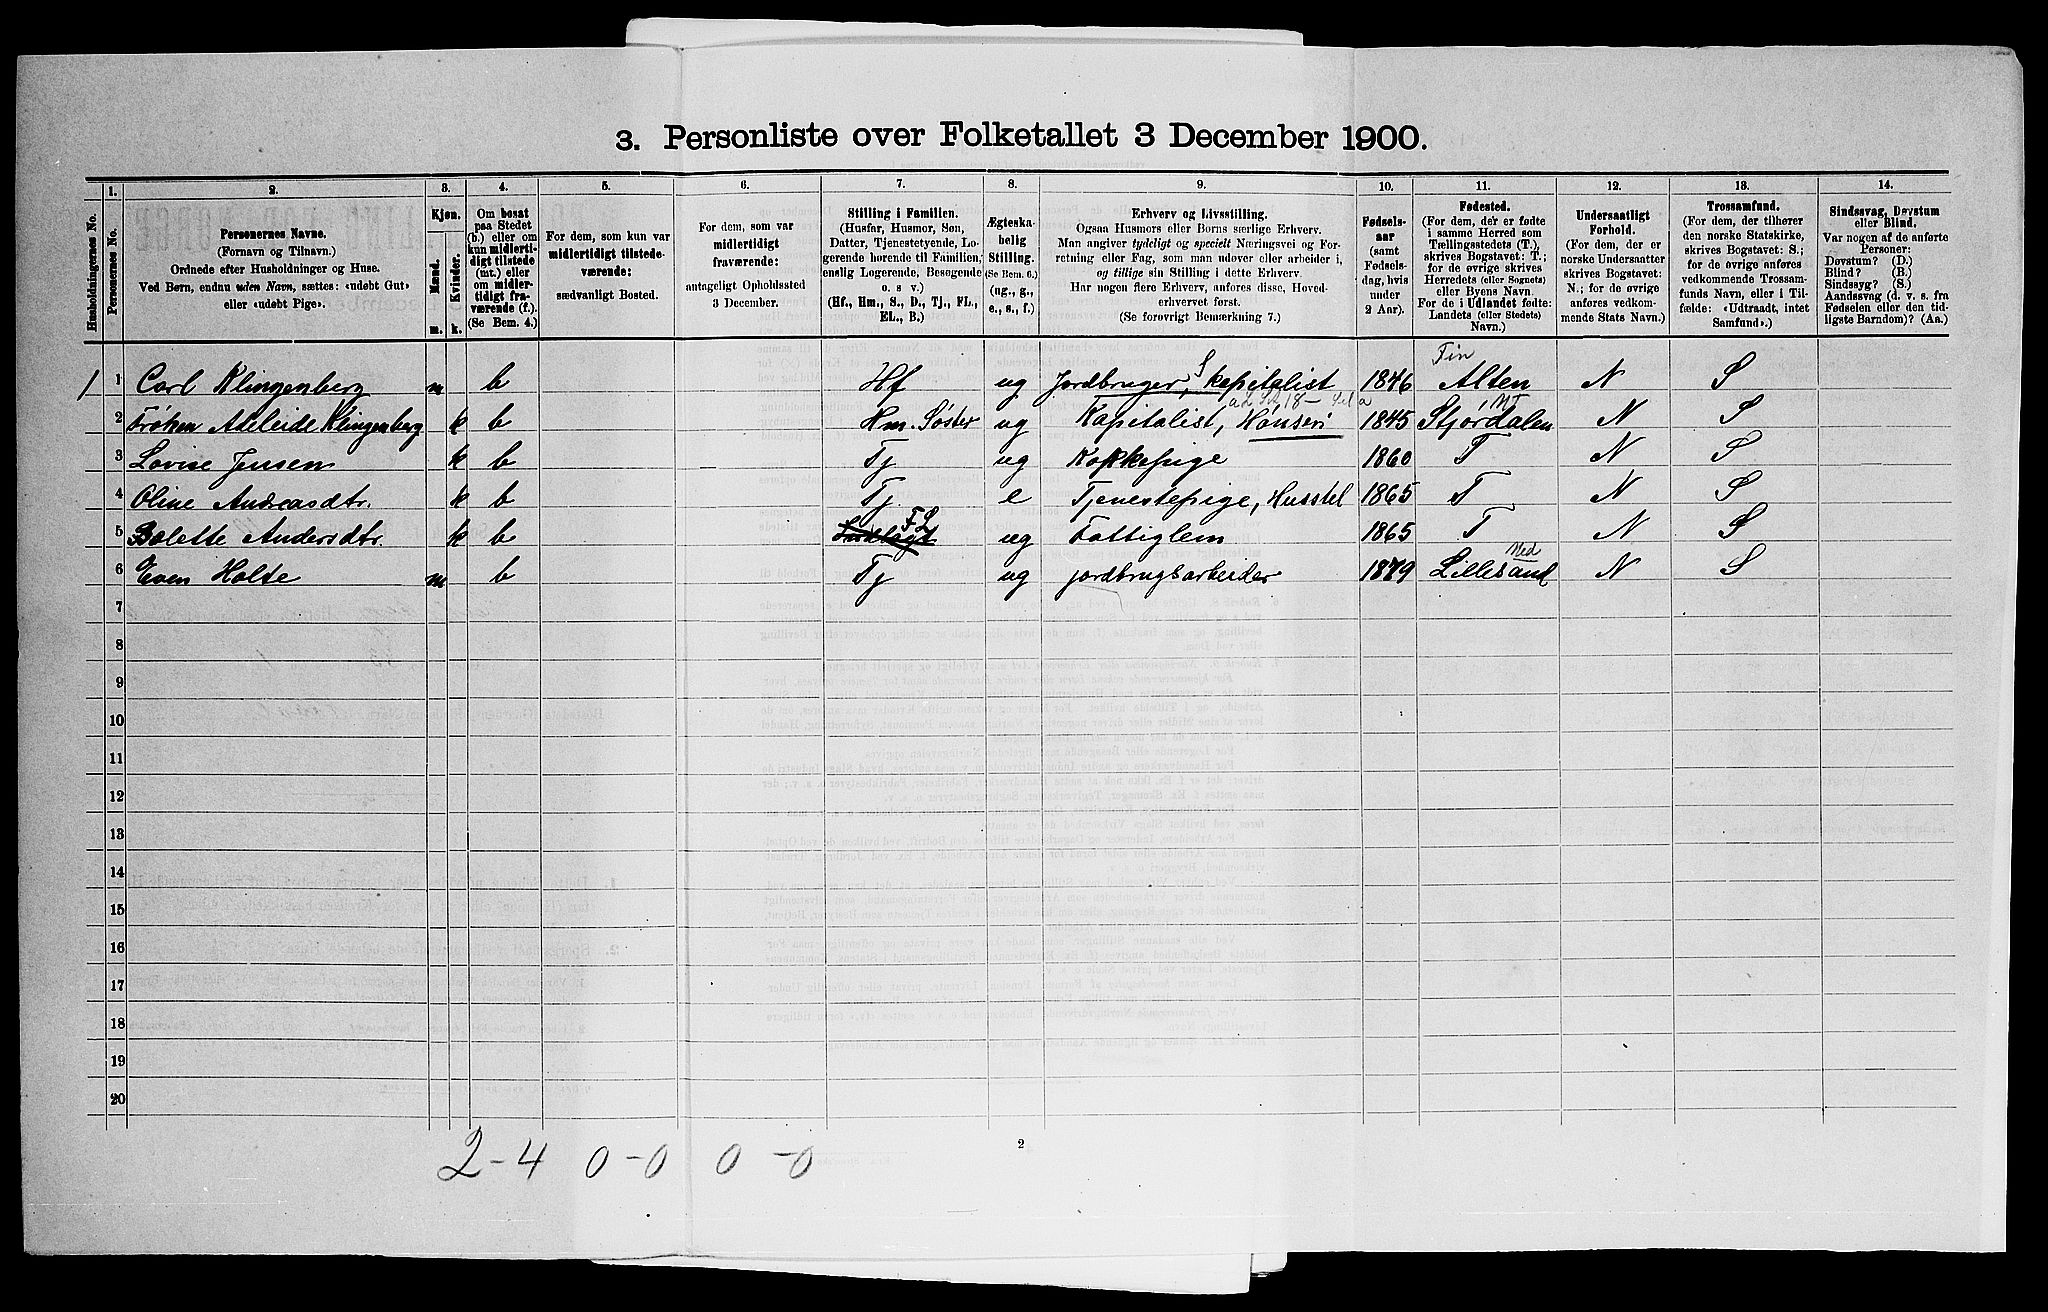 3. Personliste over Folketallet 3 December 1900.
1. 2. 3. 4. 5. 6. 7. 8. 9. 10. 11. 12. 13. 14.
Husholdningernes No.
Personernes No.
Personernes Navne.
(Fornavn og Tilnavn.)
Ordnede efter Husholdninger og Huse.
Ved Børn, endnu uden Navn, sættes: «udøbt Gut»
eller «udøbt Pige».
Kjøn.
Mænd.
Kvinder.
m. k.
Om bosat
paa Stedet
(b.) eller om
kun midlerti-
digt tilstede
(mt.) eller
om midler-
tidigt fra-
værende (f.).
(Se Bem. 4.)
For dem, som kun var
midlertidigt tilstede-
værende:
sædvanligt Bosted.
For dem, som var
midlertidigt
fraværende:
antageligt Opholdssted
3 December.
Stilling i Familien.
(Husfar, Husmor, Søn,
Datter, Tjenestetyende, Lo-
gerende hørende til Familien,
enslig Logerende, Besøgende
o. s. v.)
(Hf., Hm., S., D., Tj., FL.,
EL., B.)
Ægteska-
belig
Stilling.
(Se Bem. 6.)
(ug., g.,
e., s., f.)
Erhverv og Livsstilling.
Ogsaa Husmors eller Børns særlige Erhverv.
Man angiver tydeligt og specielt Næringsvei og For-
retning eller Fag, som man udøver eller arbeider i,
og tillige sin Stilling i dette Erhverv.
Har nogen flere Erhverv, anføres disse, Hoved-
erhvervet først.
(Se forøvrigt Bemærkning 7.)
Fødsels-
aar
(samt
Fødsels-
dag, hvis
under
2 Aar).
Fødested.
(For dem, der er fødte
i samme Herred som
Tællingsstedets (T.),
skrives Bogstavet: T.;
for de øvrige skrives
Herredets (eller Sognets)
eller Byens Navn.
For de i Udlandet fødte:
Landets (eller Stedets)
Navn.)
Undersaatligt
Forhold.
(For dem, der er
norske Undersaatter
skrives Bogstavet:
N.; for de øvrige
anføres vedkom-
mende Stats Navn.)
Trossamfund.
(For dem, der tilhører
den norske Statskirke,
skrives Bogstavet: S.;
for de øvrige anføres
vedkommende Trossam-
funds Navn, eller i Til-
fælde: «Udtraadt, intet
Samfund».)
Sindssvag, Døvstum
eller Blind.
Var nogen af de anførte
Personer:
Døvstum? (D.)
Blind? (B.)
Sindssyg? (S.)
Aandssvag (d. v. s. fra
Fødselen eller den tid-
ligste Barndom)? (Aa.)
1 1 Carl Klingenberg m b Hf ug Jordbruger, S kapitalist 1846 Fin Alten N S
2 Frøken Adeleide Klingenberg k b Hm. Søster ug Kapitalist, 1845 Stjórdalen NT N S
3 Lovise Jensen k b Tj ug Kokkepige 1860 T N S
4 Oline Andreasdtr. k b Tj e Tjenestepige, Husstel 1865 T N S
5 Bolette Andersdtr. k b FL ug Fattiglem 1865 T N S
6 Even Holte m b Tj ug jordbrugsarbeider 1879 Lillesand Ned N S
7
8
9
10
11
12
13
14
15
16
17
18
19
20
2-4 0-0 0-0
2